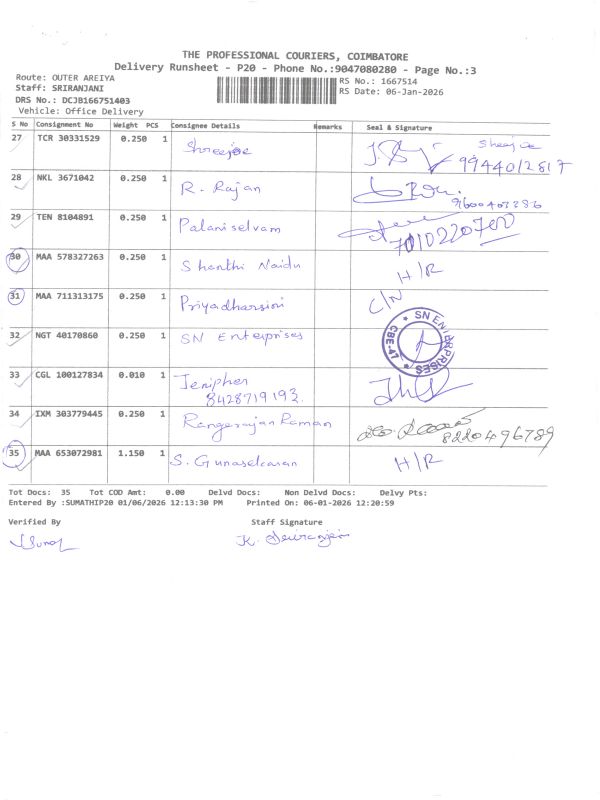 THE PROFESSIONAL COURIERS, COIMBATORE
Delivery Runsheet - P20 - Phone No.:9047080280 - Page No.:3
Route: OUTER AREIYA
RS No.: 1667514
Staff: SRIRANJANI
RS Date: 06-Jan-2026
DRS No.: DCJB166751403
Vehicle: Office Delivery
S No Consignment No Weight PCS Consignee Details Remarks Seal & Signature
27 TCR 30331529 0.250 1 Shreejoe Sheejoe
9944012817
28 NKL 3671042 0.250 1 R. Rajan
9600403286
29 TEN 8104891 0.250 1 Palaniselvam
7010220700
30 MAA 578327263 0.250 1 Shanthi Naidu H/R
31 MAA 711313175 0.250 1 Priyadharsini C/N
32 NGT 40170860 0.250 1 SN Enterprises SN ENTERPRISES CBE-47
33 CGL 100127834 0.010 1 Jenipher
8428719193
34 IXM 303779445 0.250 1 Rangarajan Raman
8220496789
35 MAA 653072981 1.150 1 S. Gunasekaran H/R
Tot Docs: 35 Tot COD Amt: 0.00 Delvd Docs: Non Delvd Docs: Delvy Pts:
Entered By :SUMATHIP20 01/06/2026 12:13:30 PM Printed On: 06-01-2026 12:20:59
Verified By Staff Signature